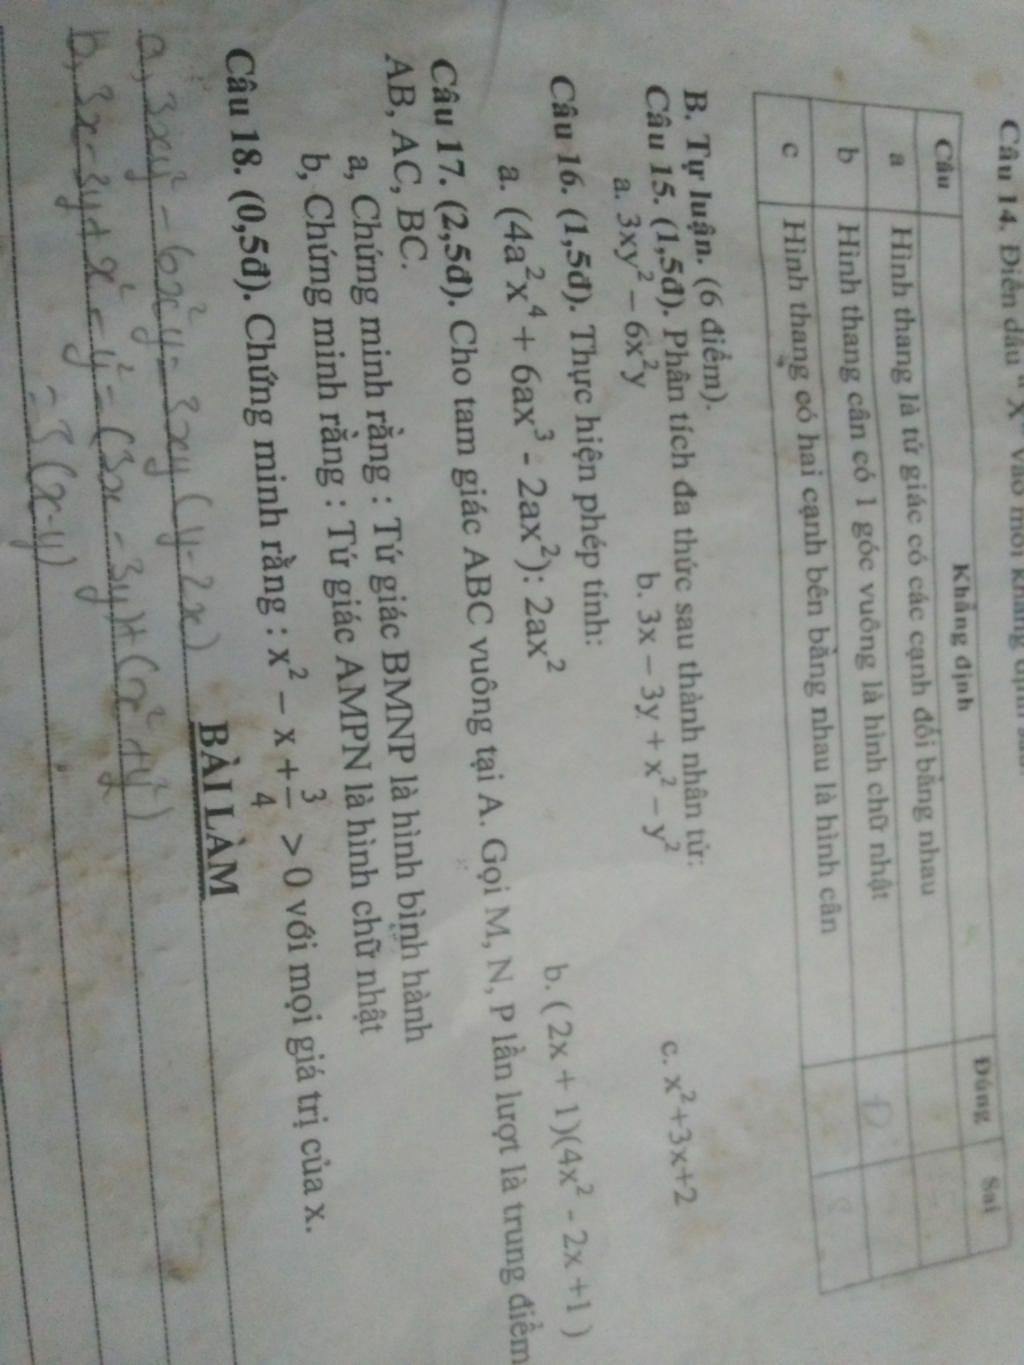 Câu 14. Điền dấu "X" vào mỗi khẳng định sau.
Câu Khẳng định Đúng Sai
a Hình thang là tứ giác có các cạnh đối bằng nhau
b Hình thang cân có 1 góc vuông là hình chữ nhật Đ
c Hình thang có hai cạnh bên bằng nhau là hình cân S
B. Tự luận. (6 điểm).
Câu 15. (1,5đ). Phân tích đa thức sau thành nhân tử:
a. 3xy² – 6x²y b. 3x – 3y + x² – y² c. x²+3x+2
Câu 16. (1,5đ). Thực hiện phép tính:
a. (4a²x⁴ + 6ax³ - 2ax²): 2ax² b. ( 2x + 1)(4x² - 2x +1 )
Câu 17. (2,5đ). Cho tam giác ABC vuông tại A. Gọi M, N, P lần lượt là trung điểm
AB, AC, BC.
a, Chứng minh rằng : Tứ giác BMNP là hình bình hành
b, Chứng minh rằng : Tứ giác AMPN là hình chữ nhật
Câu 18. (0,5đ). Chứng minh rằng : x² – x + 3/4 > 0 với mọi giá trị của x.
BÀI LÀM
a, 3xy² - 6x²y = 3xy(y-2x)
b, 3x-3y+x²-y² = (3x-3y)+(x²+y²)
= 3(x-y)